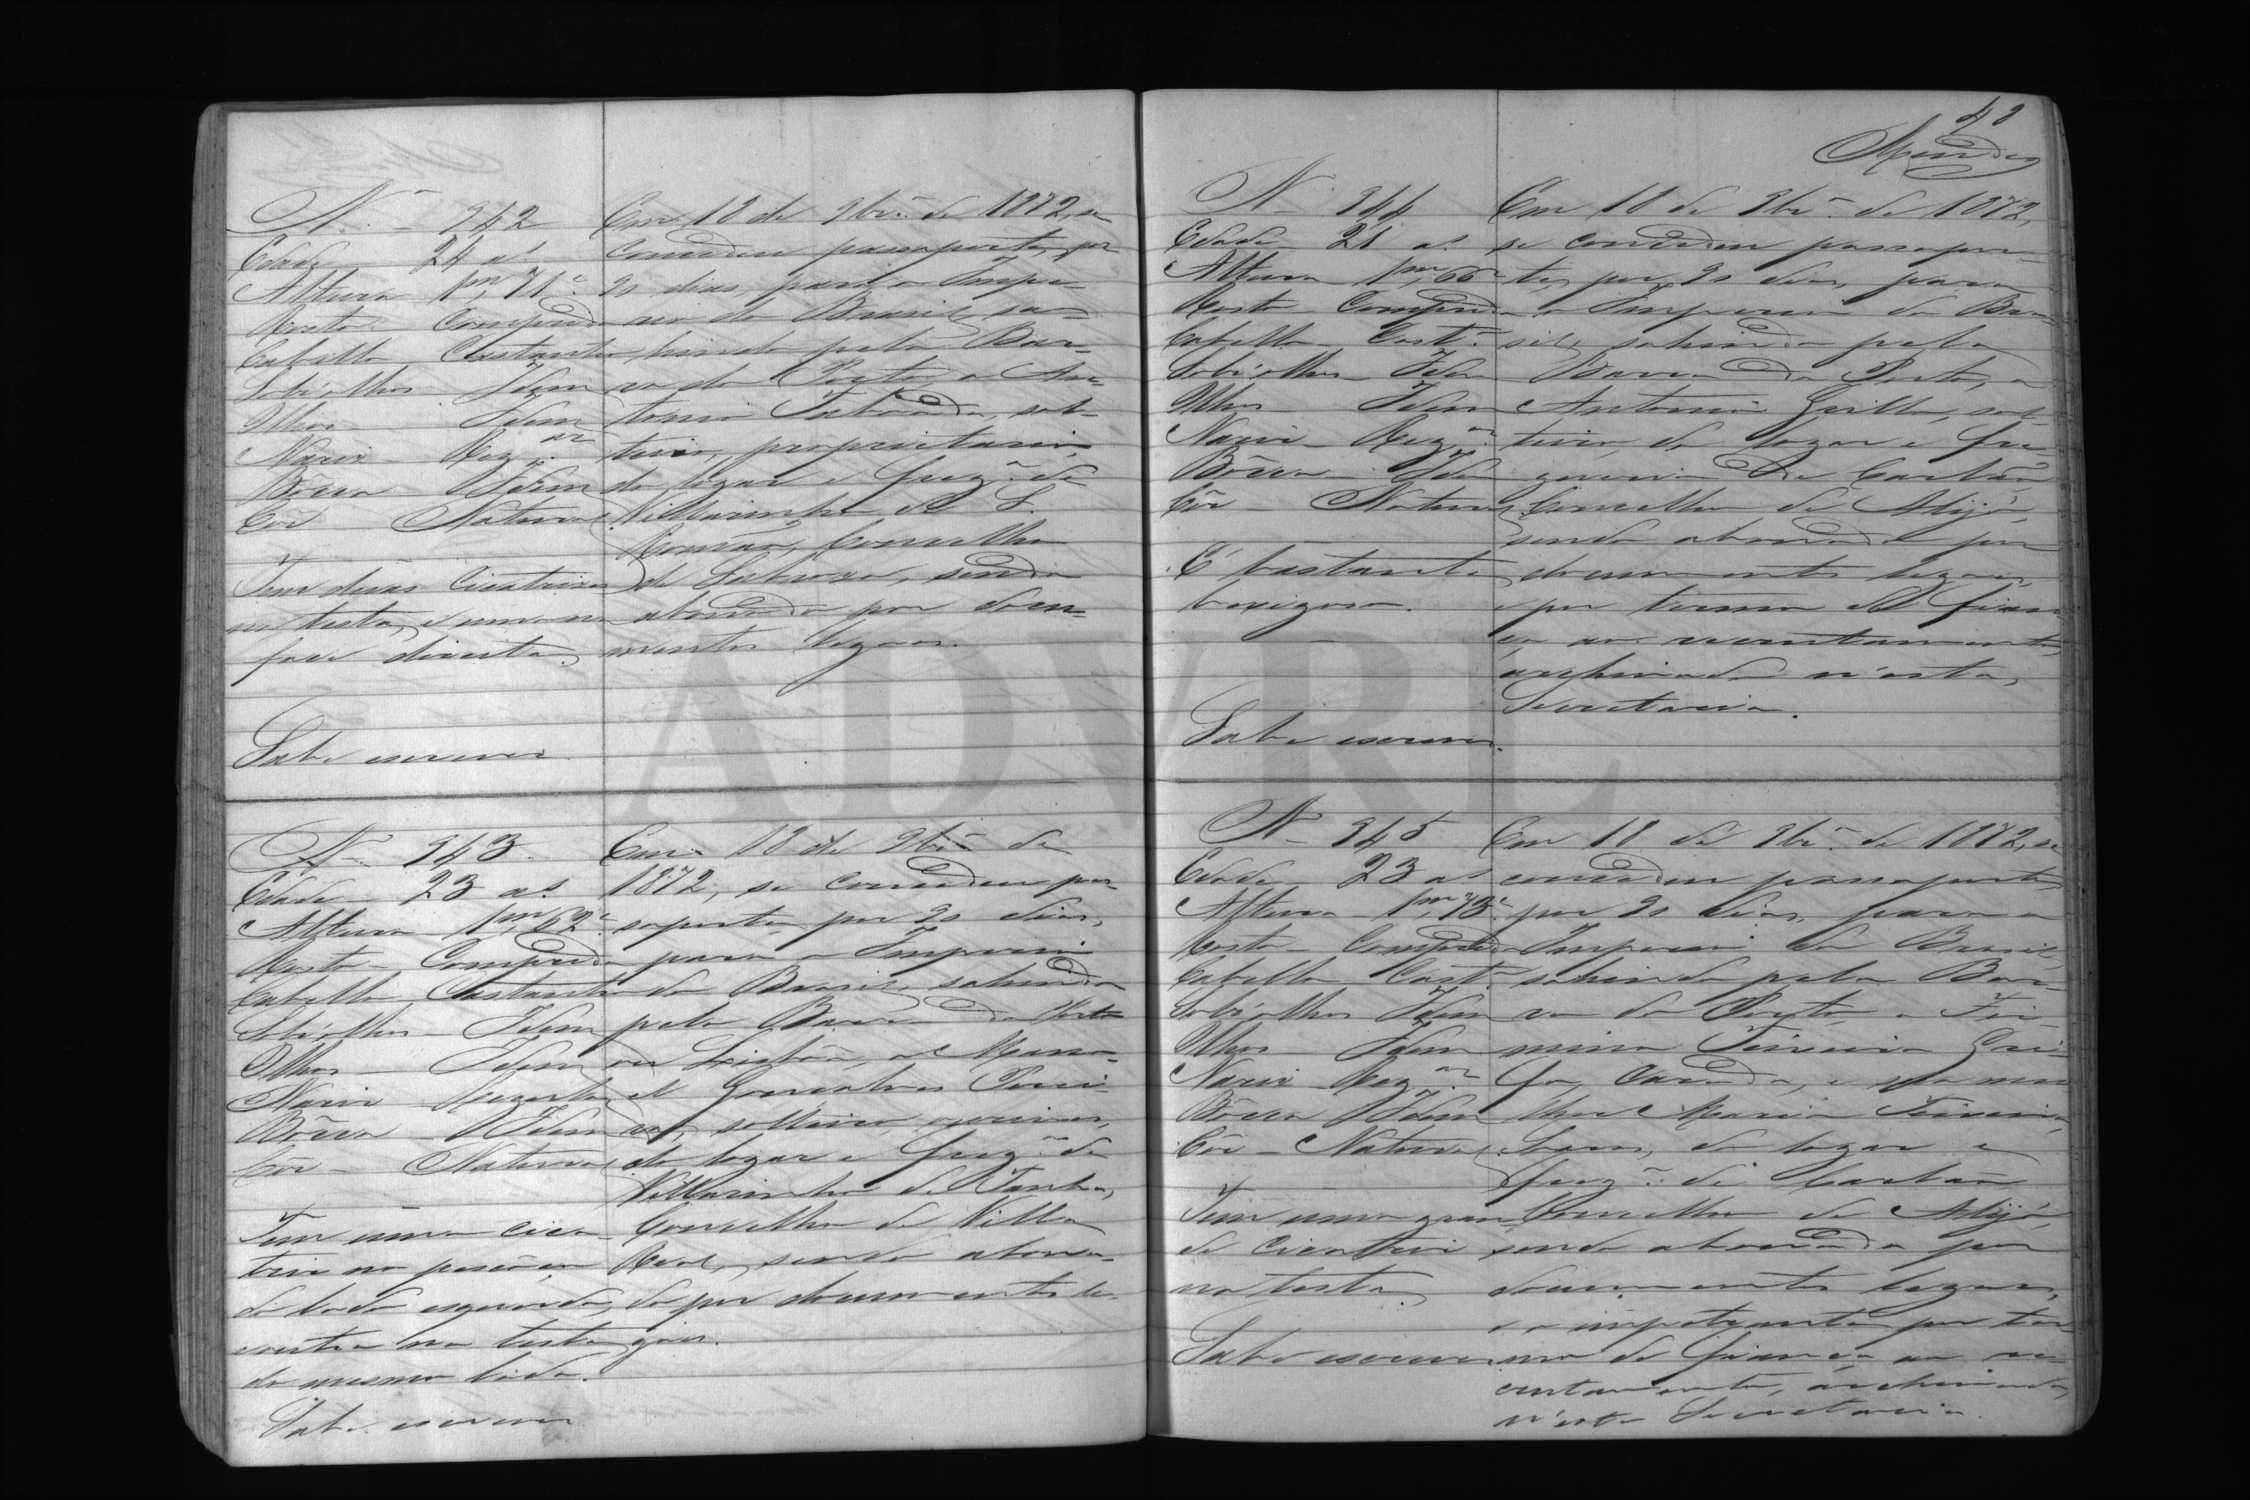 N.º 342
Edade 24 a.s
Altura 1m,71c
Rosto Comprido
Cabello Castanho
Sobr'olhos Idem
Olhos Idem
Nariz Reg.ar
Bôcca Idem
Cor Natural
Tem duas cicatrizes
na testa, e uma na
face direita.
Sabe escrever.
Em 18 de 9br.º de 1872, se
concedeu passaporte, por
90 dias, para o Impe-
rio do Brasil, sa-
hindo pela Bar-
ra do Porto, a An-
tonio Taboada, sol-
teiro, proprietario,
do logar e freg.ª de
Villarinho de S.
Romão, Concelho
de Sabroza, sendo
abonado por docu-
mentos legaes.
N.º 343.
Edade 23 a.s
Altura 1m,62c
Rosto Comprido
Cabello Castanho
Sobr'olhos Idem
Olhos Idem
Nariz
Bôcca Idem
Côr Natural
Tem uma cica-
triz no pescoço
do lado esquerdo,
outra na testa
do mesmo lado.
Sabe escrever
Em 18 de 9br.º de
1872, se concedeu pas-
saporte, por 90 dias,
para o Imperio
do Brasil, sahindo
pela Barra do Porto
ou Lisbôa, a Mano-
el Gonçalves
solteiro,
do logar e freg.ª de
Villarinho de Tanha,
Concelho de Villa
Real, sendo abona-
do por documentos le-
gaes.
43
Mendes
N.º 344
Edade 21 a.s
Altura 1m,66c
Rosto Comprido
Cabello Cast.º
Sobr'olhos Idem
Olhos Idem
Nariz Reg.ar
Bôcca Idem
Côr Natural
É bastante
bexigoso.
Sabe escrever.
Em 18 de 9br.º de 1872,
se concedeu passapor-
te, por 90 dias, para
o Imperio do Bra-
sil, sahindo pela
Barra do Porto, a
Antonio Grillo, sol-
teiro, do logar e fre-
guezia de Castêdo
Concelho de Alijó,
sendo abonado por
documentos legaes,
e por termo de fian-
ça ao recrutamento,
archivado n'esta
Secretaria.
N.º 345
Edade 23 a.s
Altura 1m,73c
Rosto Comprido
Cabello Cast.º
Sobr'olhos Idem
Olhos Idem
Nariz Reg.ar
Bôcca Idem
Côr Natural
Tem uma gran-
de cicatriz
na testa.
Sabe escrever
Em 18 de 9br.º de 1872, se
concedeu passaporte,
por 90 dias, para o
Imperio do Brasil,
sahindo pela Bar-
ra do Porto, a Fir-
mino Teixeira
casado, e sua mu-
lher Maria Teixeira,
do logar e
freg.ª de Castêdo
Concelho de Alijó,
sendo abonado por
documentos legaes,
e o impetrante por ter-
mo de fiança ao re-
crutamento, archivado
n'esta Secretaria.